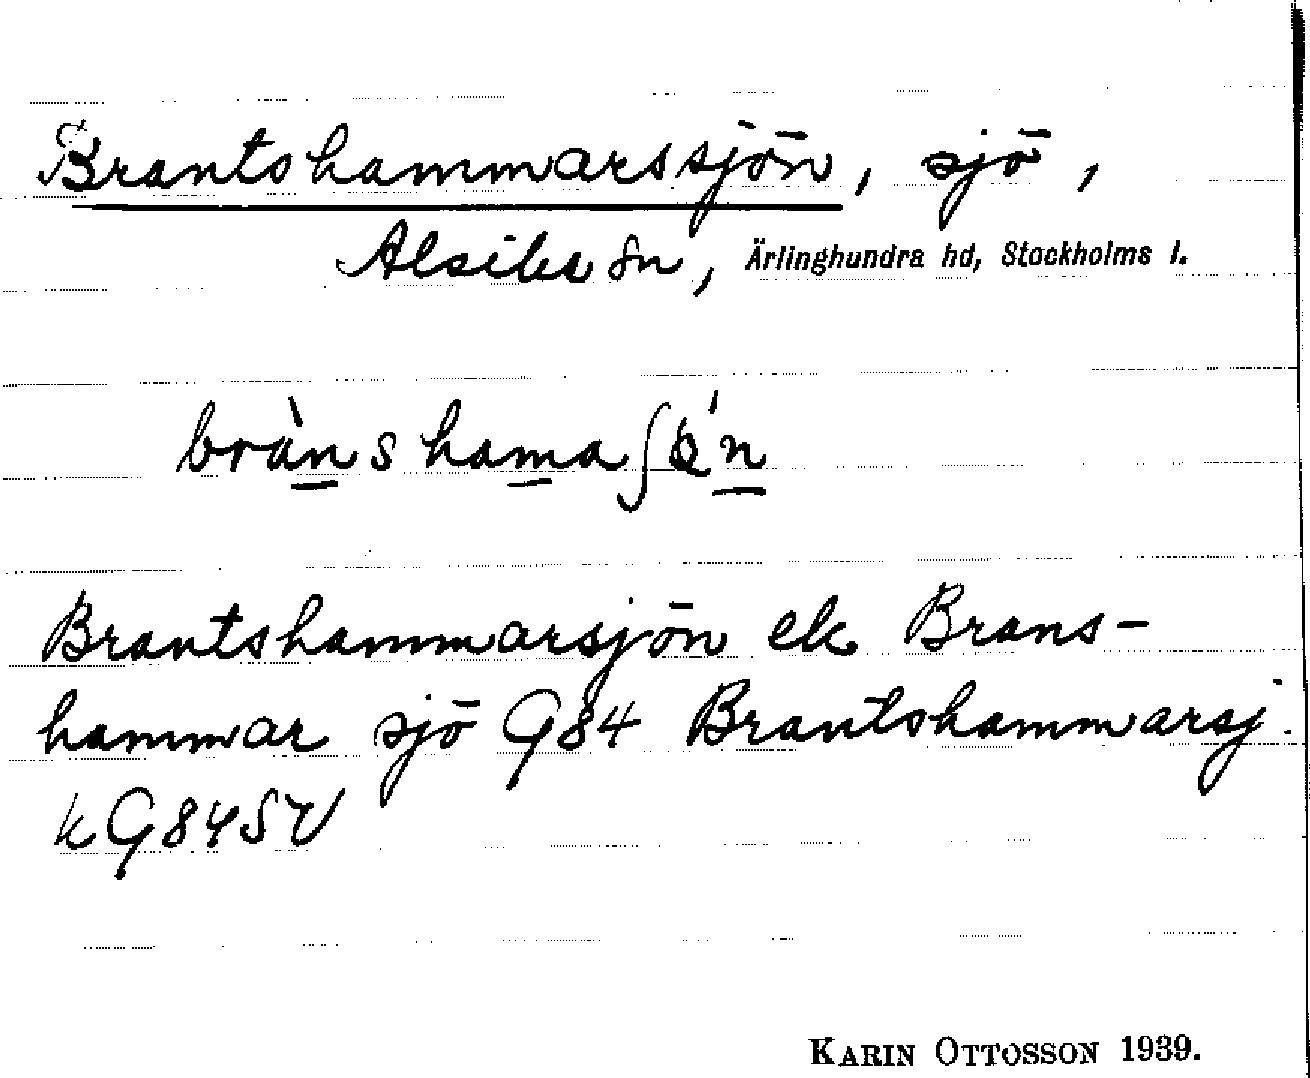 Brantshammarssjön, sjö,
Alsike sn, Ärlinghundra hd, Stockholms l.
bràn̲sham̲aʃö́n̲
Brantshammarsjön ek Brans-
hammar sjö G84 Brantshammarsj.
k G84SV
KARIN OTTOSSON 1939.